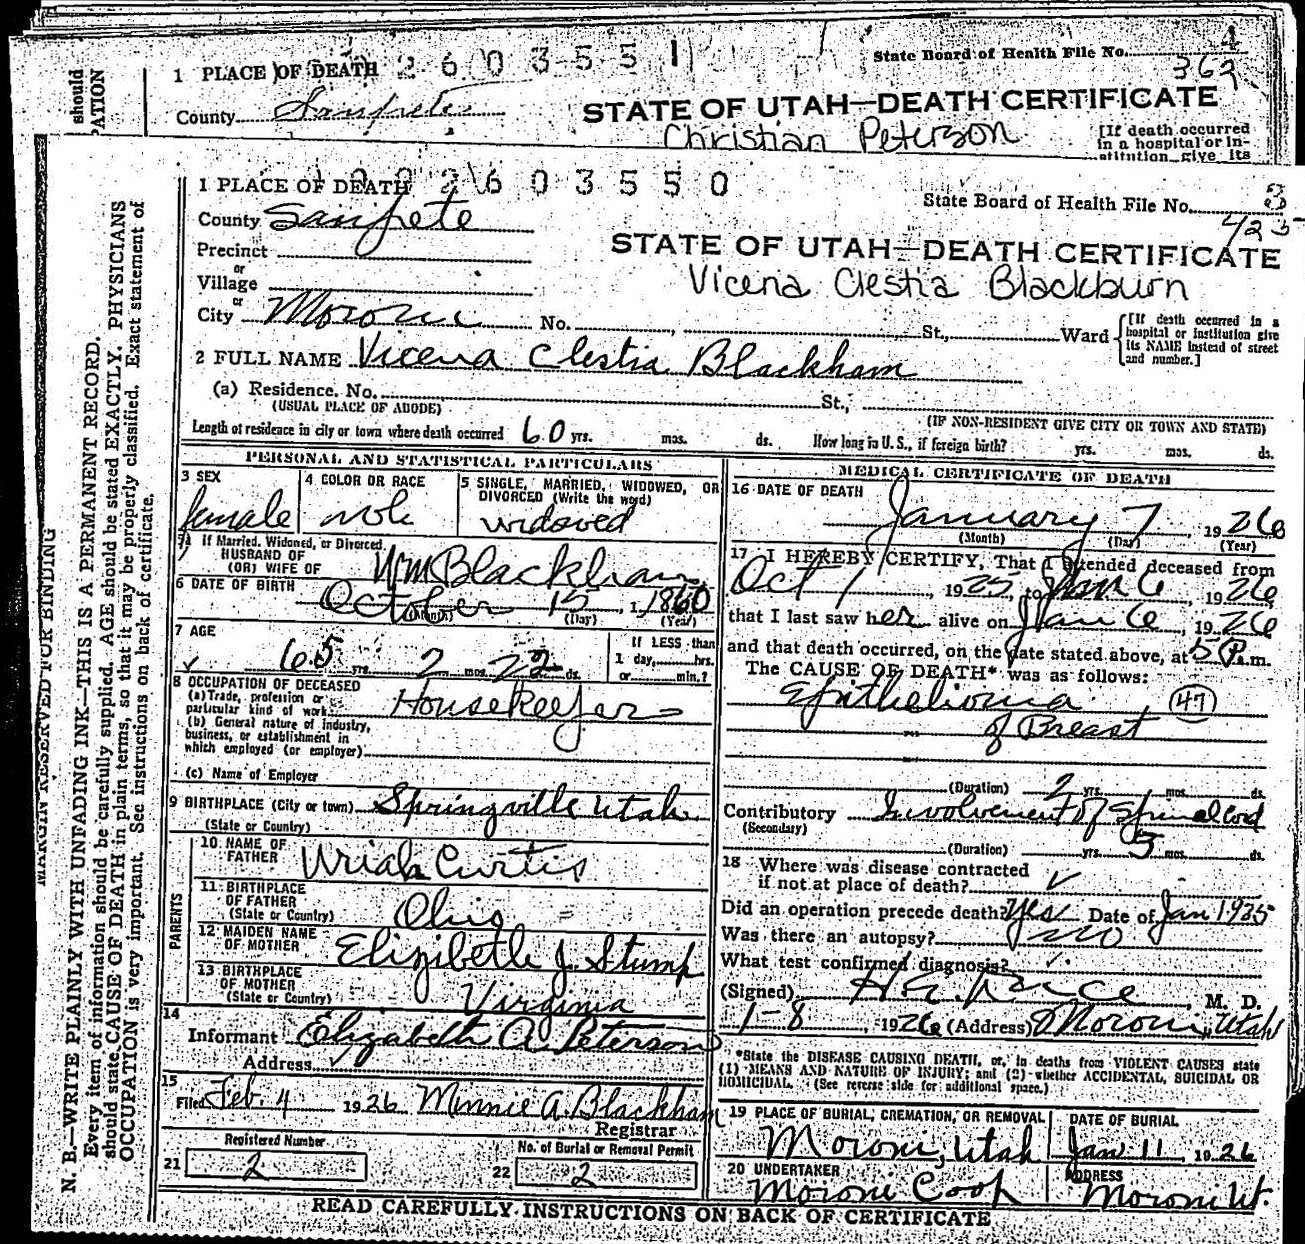 should
PATION
1 PLACE OF DEATH 2603551
State Board of Health File No. 4
362
County Sanpete
STATE OF UTAH—DEATH CERTIFICATE
Christian Peterson
[If death occurred
in a hospital or in-
stitution give its
MARGIN RESERVED FOR BINDING
N. B.—WRITE PLAINLY WITH UNFADING INK—THIS IS A PERMANENT RECORD.
Every item of information should be carefully supplied. AGE should be stated EXACTLY. PHYSICIANS
should state CAUSE OF DEATH in plain terms, so that it may be properly classified. Exact statement of
OCCUPATION is very important. See instructions on back of certificate.
1 PLACE OF DEATH 2603550
State Board of Health File No. 3
423
County Sanpete
STATE OF UTAH—DEATH CERTIFICATE
Precinct
Vicena Clestia Blackburn
or
Village
or
City Moroni No. , St., Ward
[If death occurred in a
hospital or institution give
its NAME instead of street
and number.]
2 FULL NAME Vicena Clestia Blackham
(a) Residence. No. St.,
(USUAL PLACE OF ABODE) (IF NON-RESIDENT GIVE CITY OR TOWN AND STATE)
Length of residence in city or town where death occurred 60 yrs. mos. ds. How long in U. S., if foreign birth? yrs. mos. ds.
PERSONAL AND STATISTICAL PARTICULARS
3 SEX
female
4 COLOR OR RACE
5 SINGLE, MARRIED, WIDOWED, OR
DIVORCED (Write the word)
widowed
If Married, Widowed, or Divorced
HUSBAND OF
(OR) WIFE OF Wm Blackham
6 DATE OF BIRTH October 15, 1860
(Month) (Day) (Year)
7 AGE
65 yrs. 2 mos. 22 ds.
If LESS than
1 day, hrs.
or min.?
8 OCCUPATION OF DECEASED
(a) Trade, profession or
particular kind of work Housekeeper
(b) General nature of industry,
business, or establishment in
which employed (or employer)
(c) Name of Employer
9 BIRTHPLACE (City or town) Springville Utah
(State or Country)
PARENTS
10 NAME OF
FATHER Uriah Curtis
11 BIRTHPLACE
OF FATHER
(State or Country) Ohio
12 MAIDEN NAME
OF MOTHER Elizibeth J. Stump
13 BIRTHPLACE
OF MOTHER
(State or Country) Virginia
14
Informant Elizabeth A. Peterson
Address
15
Filed Feb. 4 1926 Minnie A. Blackham
Registrar
Registered Number
21 2
No. of Burial or Removal Permit
22 2
MEDICAL CERTIFICATE OF DEATH
16 DATE OF DEATH
January 7, 1926
(Month) (Day) (Year)
17 I HEREBY CERTIFY, That I attended deceased from
Oct 1, 1925, to Jan 6, 1926
that I last saw her alive on Jan 6, 1926
and that death occurred, on the date stated above, at 5 P.m.
The CAUSE OF DEATH* was as follows:
Epithelioma (47)
of Breast
(Duration) 2 yrs. mos. ds.
Contributory Involvement of Spinal Cord
(Secondary)
(Duration) yrs. 5 mos. ds.
18 Where was disease contracted
if not at place of death?
Did an operation precede death? Yes Date of Jan 1925
Was there an autopsy? no
What test confirmed diagnosis?
(Signed) , M. D.
1-8, 1926 (Address) Moroni, Utah
*State the DISEASE CAUSING DEATH, or, in deaths from VIOLENT CAUSES state
(1) MEANS AND NATURE OF INJURY; and (2) whether ACCIDENTAL, SUICIDAL OR
HOMICIDAL. (See reverse side for additional space.)
19 PLACE OF BURIAL, CREMATION, OR REMOVAL
Moroni, Utah
DATE OF BURIAL
Jan 11, 1926
20 UNDERTAKER
Moroni Coop
ADDRESS
Moroni Ut.
READ CAREFULLY INSTRUCTIONS ON BACK OF CERTIFICATE